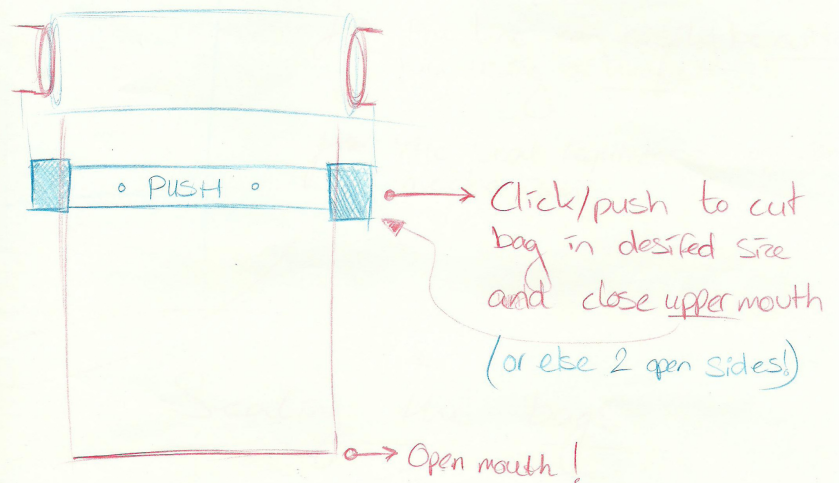 PUSH
Click/push to cut
bag in desired size
and close upper mouth
(or else 2 open sides!)
Open mouth!